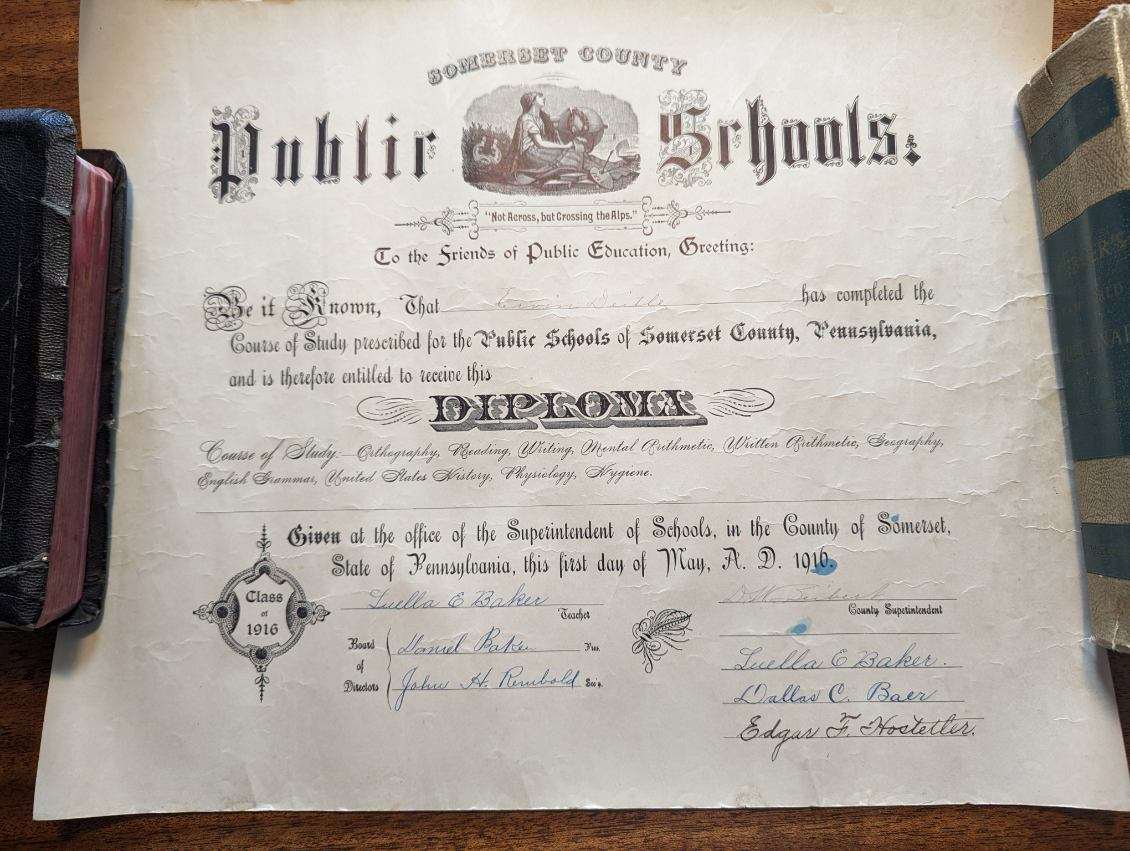 SOMERSET COUNTY
Public Schools.
"Not Across, but Crossing the Alps."
To the Friends of Public Education, Greeting:
Be it Known, That has completed the
Course of Study prescribed for the Public Schools of Somerset County, Pennsylvania,
and is therefore entitled to receive this
DIPLOMA
Course of Study.—Orthography, Reading, Writing, Mental Arithmetic, Written Arithmetic, Geography,
English Grammar, United States History, Physiology, Hygiene.
Given at the office of the Superintendent of Schools, in the County of Somerset,
State of Pennsylvania, this first day of May, A. D. 1916.
Class
of
1916
Luella E Baker
Teacher
Board of Directors
Daniel Baker Pres.
John H. Rembold Sec'y.
D. W. Seibert
County Superintendent
Luella E Baker.
Dallas C. Baer
Edgar F. Hostetler.